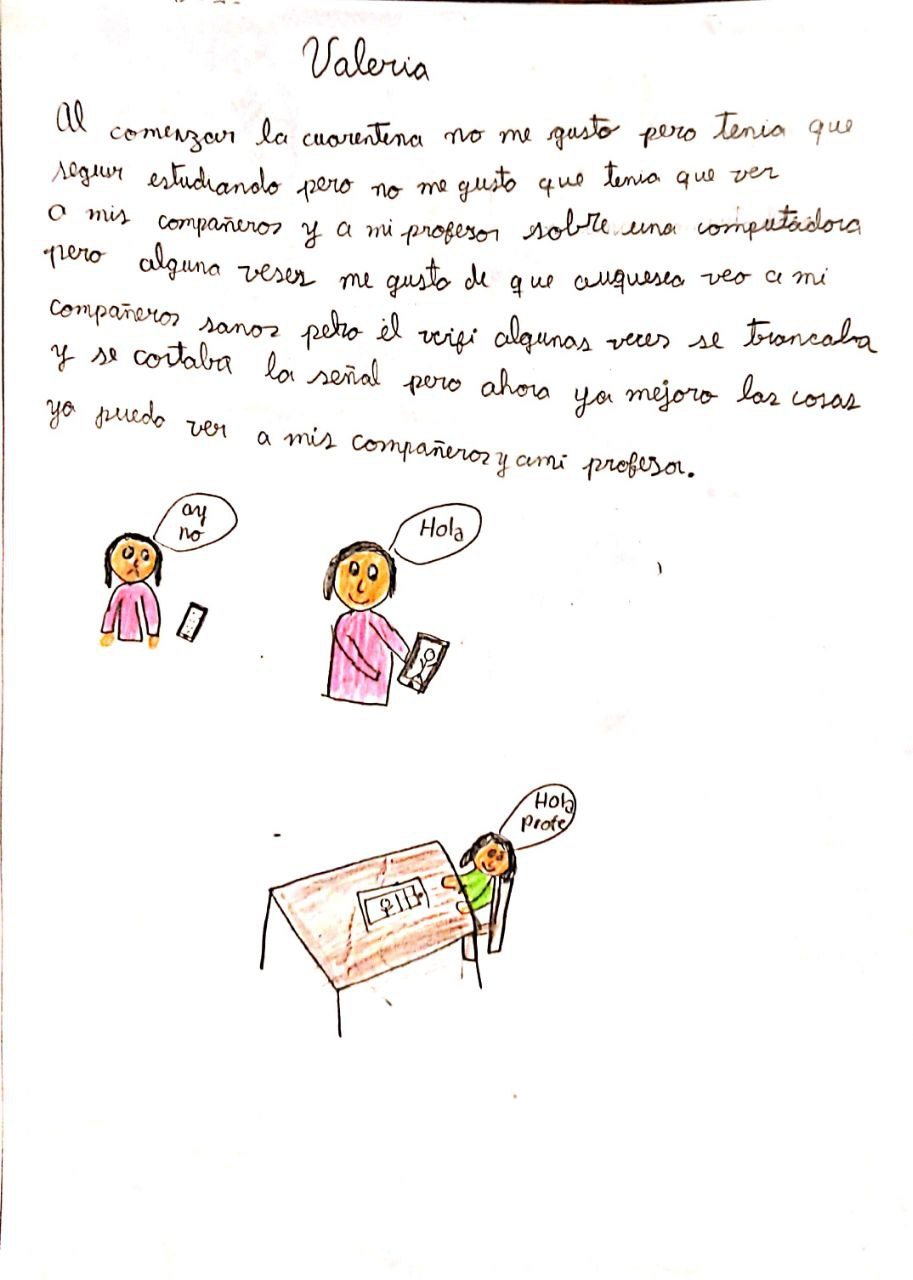 Valeria
Al comenzar la cuarentena no me gusto pero tenia que
seguir estudiando pero no me gusto que tenia que ver
a mis compañeros y a mi profesor sobre una computadora
pero alguna veses me gusto de que auquesea veo a mi
compañeros sanos pero él weifi algunas veces se trancaba
y se cortaba la señal pero ahora ya mejoro las cosas
ya puedo ver a mis compañeros y a mi profesor.
ay
no
Hola
Hola
profe